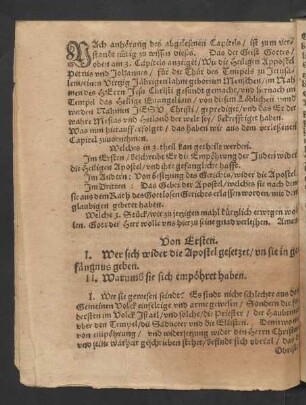 NAch anhörung des abgelesenen Capitels / ist zum ver-
stande nötig zu wissen dieses. Das der Geist Gottes /
oben am 3. Capitels anzeiget / Wie die Heiligen Appostel
Petrus und Johannes / für die Thür des Tempels zu Jerusa-
lem / einen Viertzig Jährigen lahm gebornen Menschen / im Nah-
men des HErrn Jesu Christi gesund gemacht / und hernach im
Tempel das Heilige Evangelium / von diesem Löblichen und
werden Nahmen JESU Christi / geprediget / und das Er der
wahre Messias und Heiland der welt sey / bekreftiget haben.
Was nun hierauff erfolget / das haben wir aus dem verlesenen
Capitel zuvornehmen.
Welches in 3. theil kan getheilet werden.
Im Ersten / beschreibt Er die Empöhrung der Juden wider
die Heiligen Apostel / und ihr gefangliche hafft.
Im Andern: Von besetzung des Gerichts / wider die Apostel.
Im Dritten: Das Gebet der Apostel / welches sie nach dem
sie aus dem Rath des Gottlosen Gerichts erlöset worden / mit den
glaubigen gebetet haben.
Welche 3. Stück / wir zu jetzigen mahl kürtzlich erwegen wol-
len. Gott der Herr wolle uns hiezu seine gnad verleihen. Amen
Von Ersten.
I. Wer sich wider die Apostel gesetzet / und sie in ge-
fängnus geben.
II. Warumb sie sich empöhret haben.
I. Wer sie gewesen seind? Es sindt nicht schlechte aus dem
Gemeinen Volck einfeltige und arme gewesen / Sondern die
Obersten im Volck Israel / und solche / die Priester / der Hauptman
uber den Tempel / die Saducer und die Eltisten.